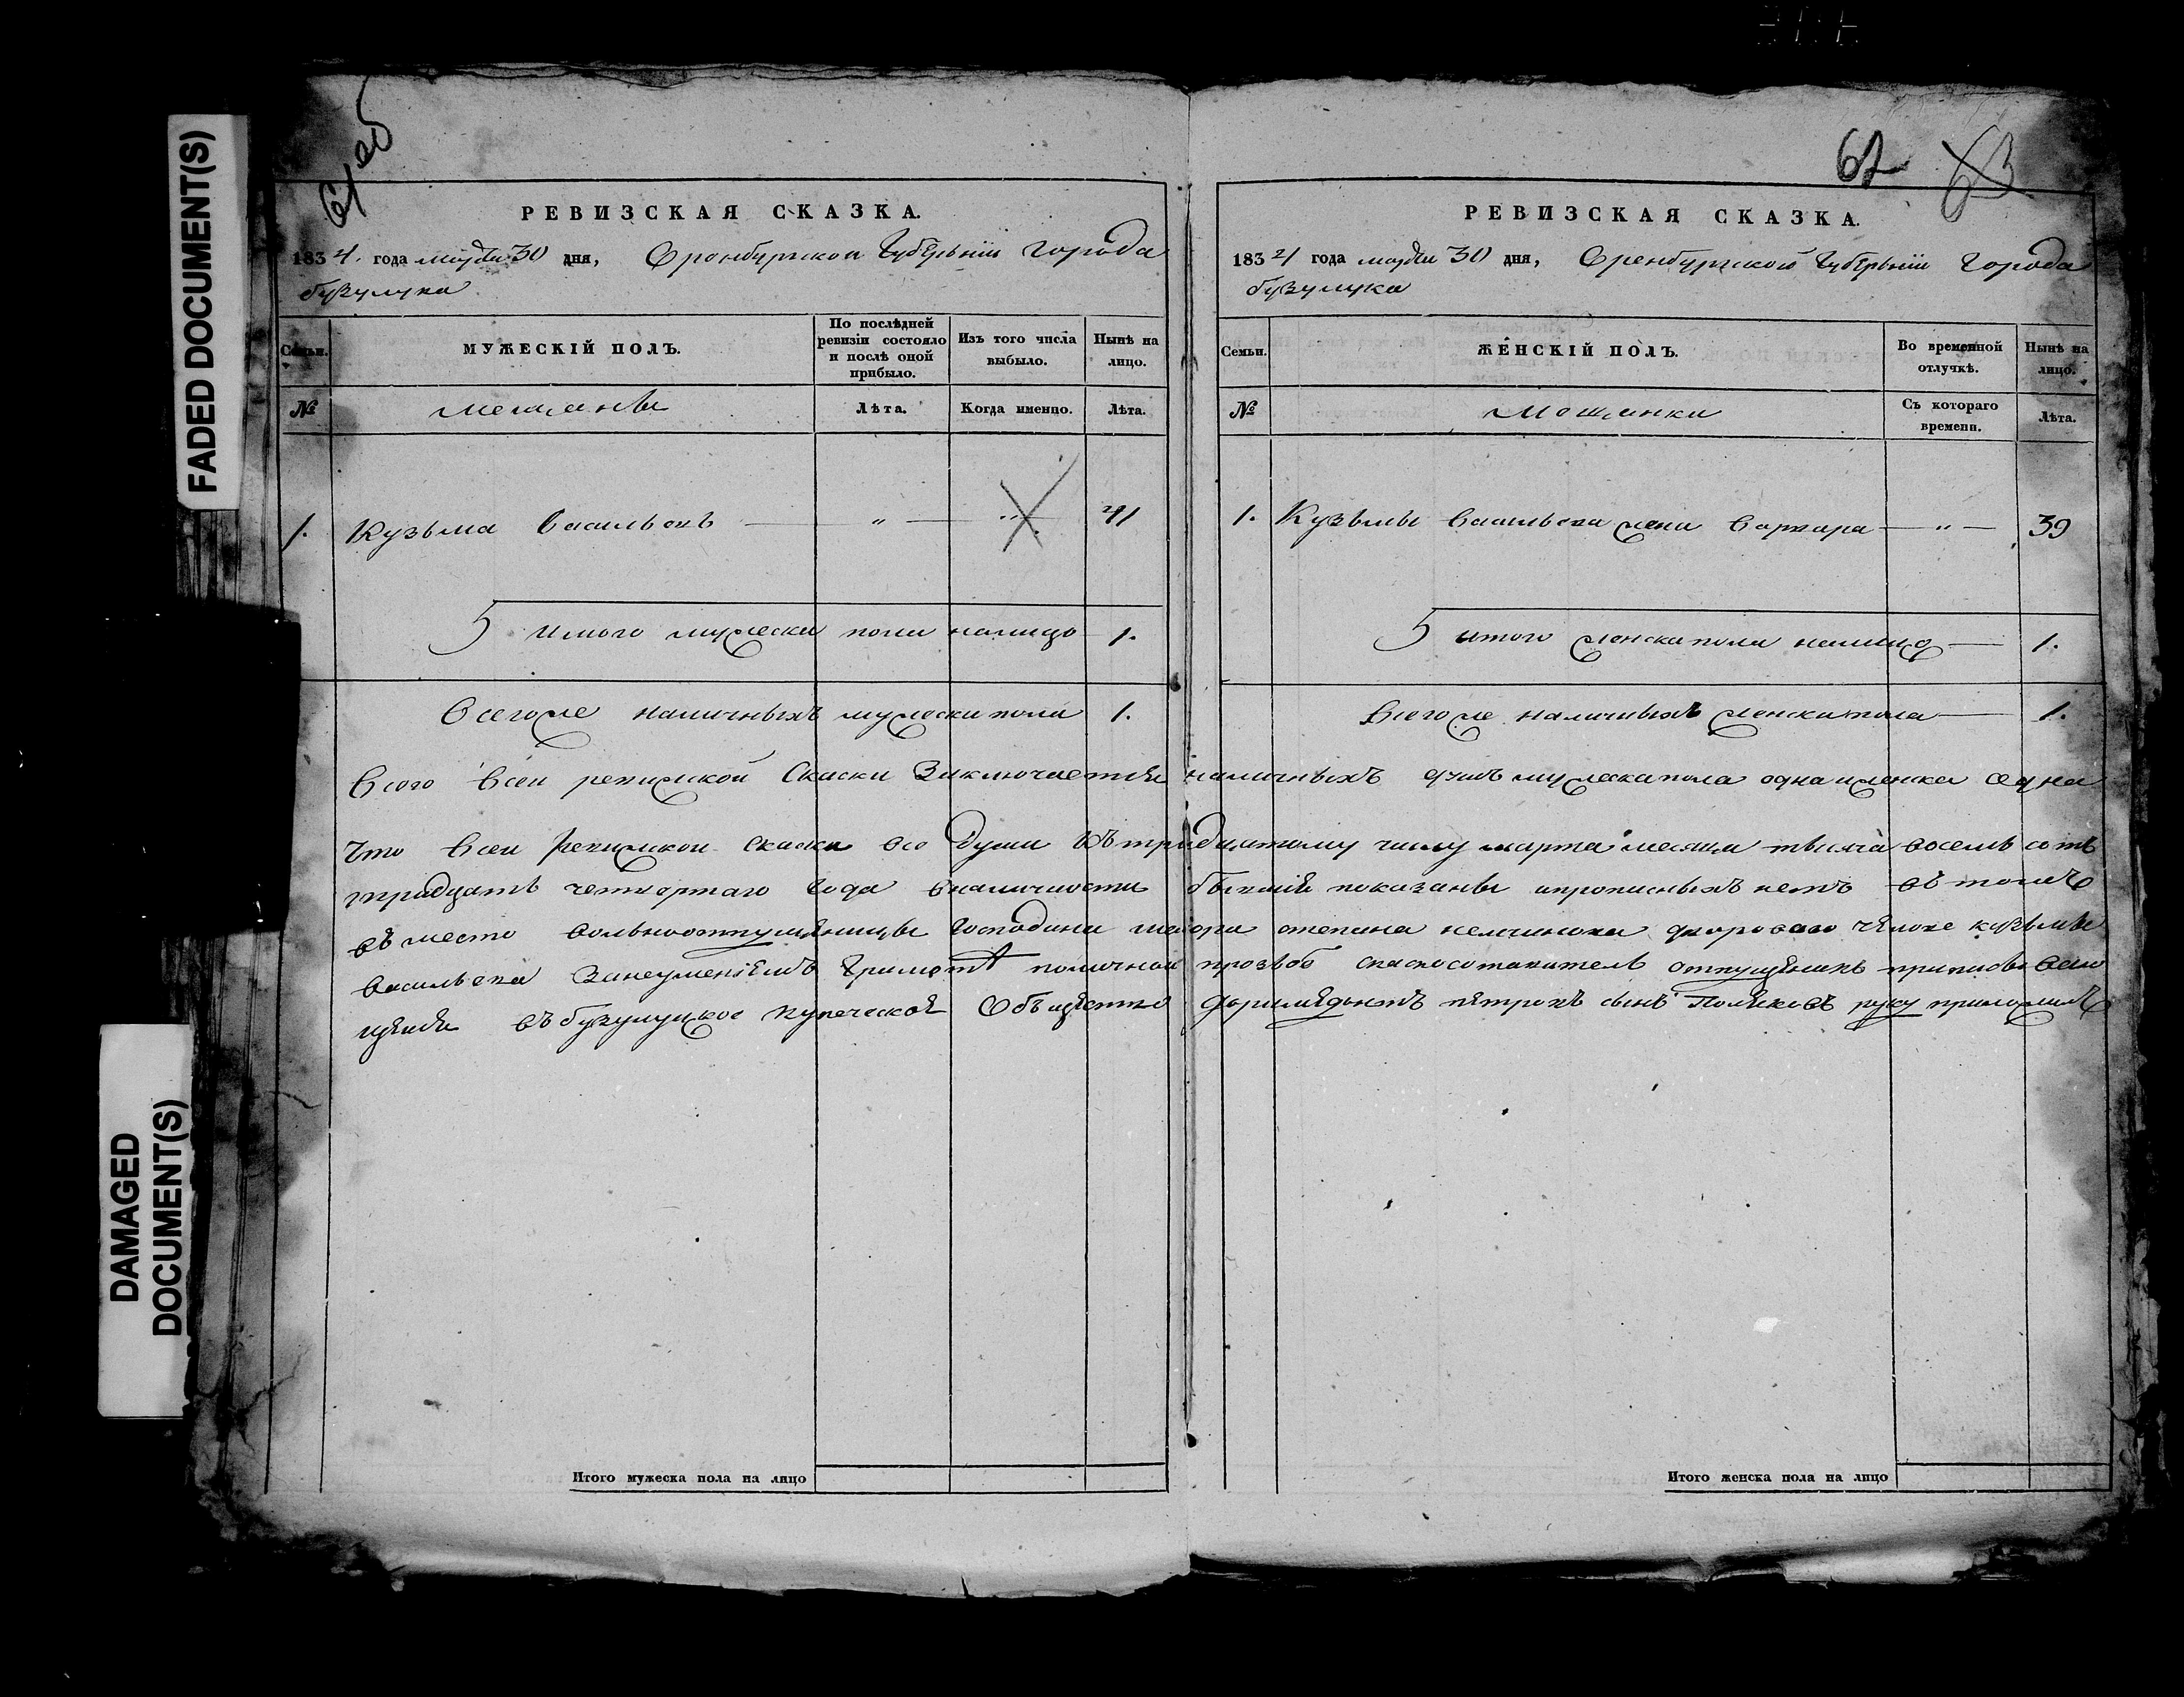 FADED DOCUMENT(S)
DAMAGED
DOCUMENT(S)
РЕВИЗСКАЯ СКАЗКА.
1834. года марта 30 дня, Оренбургскои Губѣрьнии Города
бузулука
Семьи.
МУЖЕСКІЙ ПОЛЪ.
По послѣдней ревизіи состояло и послѣ оной прибыло.
Изъ того числа выбыло.
Нынѣ на лицо.
№
мещаны
Лѣта.
Когда именно.
Лѣта.
1. Кузьма васильевъ — " — 41
итого мужеска пола налицо 1.
Всегоже наличныхъ мужеска пола 1.
62 63
РЕВИЗСКАЯ СКАЗКА.
1834 года марта 30 дня, Оренбургской Губѣрьнии Города
бузулука
Семьи.
ЖЕНСКІЙ ПОЛЪ.
Во временной отлучкѣ.
Нынѣ на лицо.
№
мещанки
Съ котораго времени.
Лѣта.
1. Кузьмы васильева жена варвара — " — 39
итого женска пола налицо — 1.
Всегоже наличныхъ женска пола — 1.
Всего всеи ревижской Скаски Заключаетця наличныхъ душъ мужеска пола одна иженска одна
Что всеи Ревижскои скаски все души къ тридцатому числу марта месяца тысяча восемь сотъ
тридцать четвертаго года вналичности бывшия показаны ипрописныхъ нетъ въ томъ
въ место вольноотпущенницы Господина маиора степана немчинова двороваго человека кузьмы
васильева Занеуменіемъ Грамоте поличнои прозьбе скаскосоставитель отпущеникъ приписываю
щеися въ бузулуцкое купеческое Объщество петровъ сынъ Поляковъ руку приложилъ
Итого мужеска пола на лицо
Итого женска пола на лицо